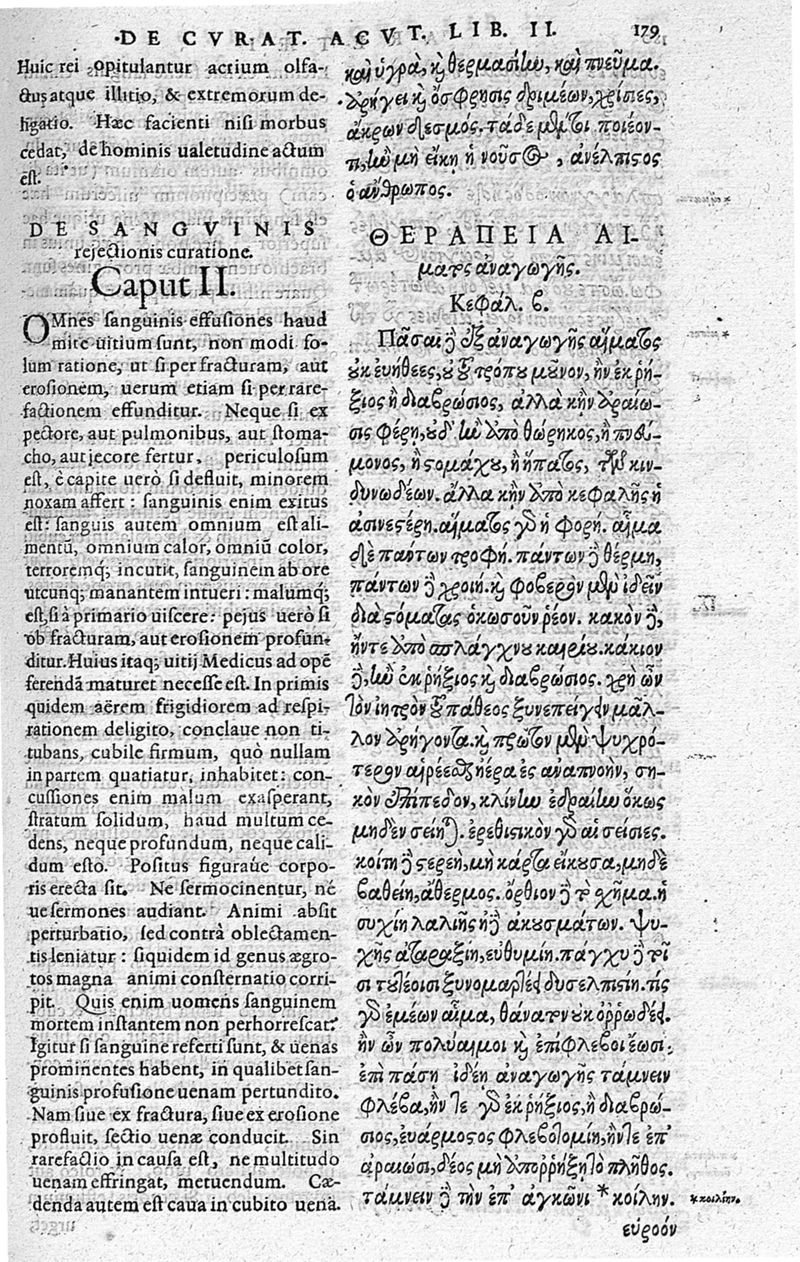 DE CVRAT. ACVT. LIB. II. 179
Huic rei opitulantur acrium olfa-
ctus atque illitio, & extremorum de-
ligatio. Hæc facienti nisi morbus
cedat, de hominis ualetudine actum
est.
DE SANGVINIS
rejectionis curatione.
Caput II.
OMnes sanguinis effusiones haud
mite uitium sunt, non modi so-
lum ratione, ut si per fracturam, aut
erosionem, uerum etiam si per rare-
factionem effunditur. Neque si ex
pectore, aut pulmonibus, aut stoma-
cho, aut jecore fertur, periculosum
est, è capite uerò si defluit, minorem
noxam affert: sanguinis enim exitus
est: sanguis autem omnium est ali-
mentū, omnium calor, omniū color,
terroremq; incutit, sanguinem ab ore
utcunq; manantem intueri: malumq;
est, si à primario uiscere: pejus uerò si
ob fracturam, aut erosionem profun-
ditur. Huius itaq; uitij Medicus ad opē
ferendā maturet necesse est. In primis
quidem aërem frigidiorem ad respi-
rationem deligito, conclaue non ti-
tubans, cubile firmum, quò nullam
in partem quatiatur, inhabitet: con-
cussiones enim malum exasperant,
stratum solidum, haud multum ce-
dens, neque profundum, neque cali
dum esto. Positus figuraúe corpo-
ris erecta sit. Ne sermocinentur, né
ue sermones audiant. Animi absit
perturbatio, sed contrà oblectamen-
tis leniatur: siquidem id genus ægro-
tos magna animi consternatio corri-
pit. Quis enim uomens sanguinem
mortem instantem non perhorrescat?
Igitur si sanguine referti sunt, & uenas
prominentes habent, in qualibet san-
guinis profusione uenam pertundito.
Nam siue ex fractura, siue ex erosione
profluit, sectio uenæ conducit. Sin
rarefactio in causa est, ne multitudo
uenam effringat, metuendum. Cæ-
denda autem est caua in cubito uena.
καὶ ὑγρὰ, καὶ θερμασίην, καὶ πνεῦμα.
ἀρήγει καὶ ὄσφρησις δριμέων, χρίσιες,
ἄκρων δεσμός. τάδε μὲν τοι ποιέον-
τι, ἢν μὴ εἴκῃ ἡ νοῦσος, ἀνέλπιστος
ὁ ἄνθρωπος.
ΘΕΡΑΠΕΙΑ ΑΙ-
ματος ἀναγωγῆς.
Κεφάλ. β.
Πᾶσαι δὲ ἰδέαι ἀναγωγῆς αἵματος
οὐκ εὐήθεες, οὐ τοῦ τρόπου μοῦνον, ἢν ἐκ ῥή-
ξιος ἢ διαβρώσιος, ἀλλὰ κἢν ἀραίω-
σις φέρῃ, οὐδ' ἢν ἀπὸ θώρηκος, ἢ πνεύ-
μονος, ἢ στομάχου, ἢ ἥπατος, τῶν κιν-
δυνωδέων. ἀλλὰ κἢν ἀπὸ κεφαλῆς ἡ
ἀσινεστέρη. αἵματος γὰρ ἡ φορή. αἷμα
δὲ πάντων τροφή. πάντων δὲ θέρμη,
πάντων δὲ χροιή. καὶ φοβερὸν μὲν ἰδεῖν
διὰ στόματος ὁκωσοῦν ῥέον. κακὸν δὲ,
ἤντε ἀπὸ σπλάγχνου καιρίου. κάκιον
δὲ, ἢν ἐκ ῥήξιος καὶ διαβρώσιος. χρὴ ὦν
τὸν ἰητρὸν τοῦ πάθεος ξυνεπείγειν μᾶλ-
λον ἀρήγοντα. καὶ πρῶτον μὲν ψυχρό-
τερον αἱρέεσθαι ἠέρα ἐς ἀναπνοὴν, ση-
κὸν ἐπίπεδον, κλίνην ἑδραίην ὅκως
μηδὲν σείηται. ἐρεθιστικὸν γὰρ αἱ σείσιες.
κοίτη δὲ στερεὴ, μὴ κάρτα εἴκουσα, μηδὲ
βαθείη, ἄθερμος. ὄρθιον δὲ τὸ σχῆμα. ἡ
συχίη λαλιῆς ἠδὲ ἀκουσμάτων. ψυ-
χῆς ἀταραξίη, εὐθυμίη. πάγχυ δὲ τοῖ
σι τουτέοισι ξυνομαρτεῖ δυσελπιστίη. τίς
γὰρ ἐμέων αἷμα, θάνατον οὐκ ὀῤῥωδεῖ.
ἢν ὦν πολύαιμοι καὶ ἐπίφλεβοι ἔωσι,
ἐπὶ πάσῃ ἰδέῃ ἀναγωγῆς τάμνειν
φλέβα, ἤν τε γὰρ ἐκ ῥήξιος, ἢ διαβρώ-
σιος, εὐάρμοστος φλεβοτομίη, ἤν τε ἐπ'
ἀραιώσι, δέος μὴ ἀποῤῥήξῃ τὸ πλῆθος.
τάμνειν δὲ τὴν ἐπ' ἀγκῶνι *κοίλην.
*κοιλίην.
εὔροον